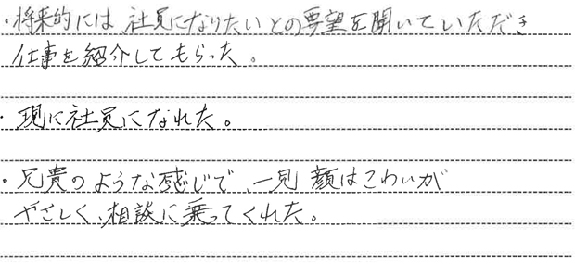 ・将来的には社員になりたいとの要望を聞いていただき
仕事を紹介してもらった。
・現に社員になれた。
・兄貴のような感じで、一見顔はこわいが
やさしく、相談に乗ってくれた。